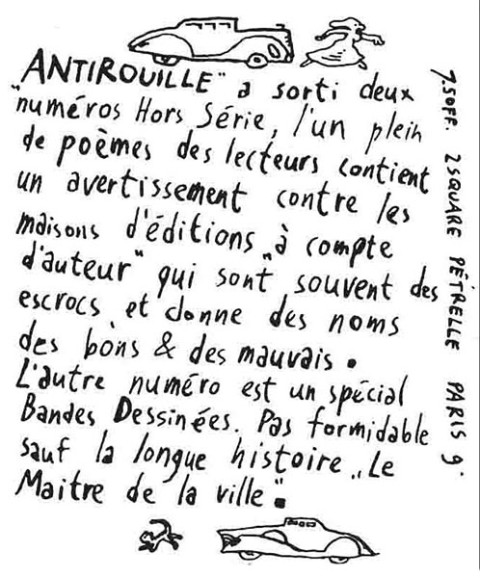 „ANTIROUILLE" a sorti deux
numéros Hors Série, l'un plein
de poèmes des lecteurs contient
un avertissement contre les
maisons d'éditions „à compte
d'auteur" qui sont souvent des
escrocs, et donne des noms
des bons & des mauvais.
L'autre numéro est un spécial
Bandes Dessinées. Pas formidable
sauf la longue histoire „Le
Maitre de la ville".
7.50FF. 2 SQUARE PÉTRELLE PARIS 9.